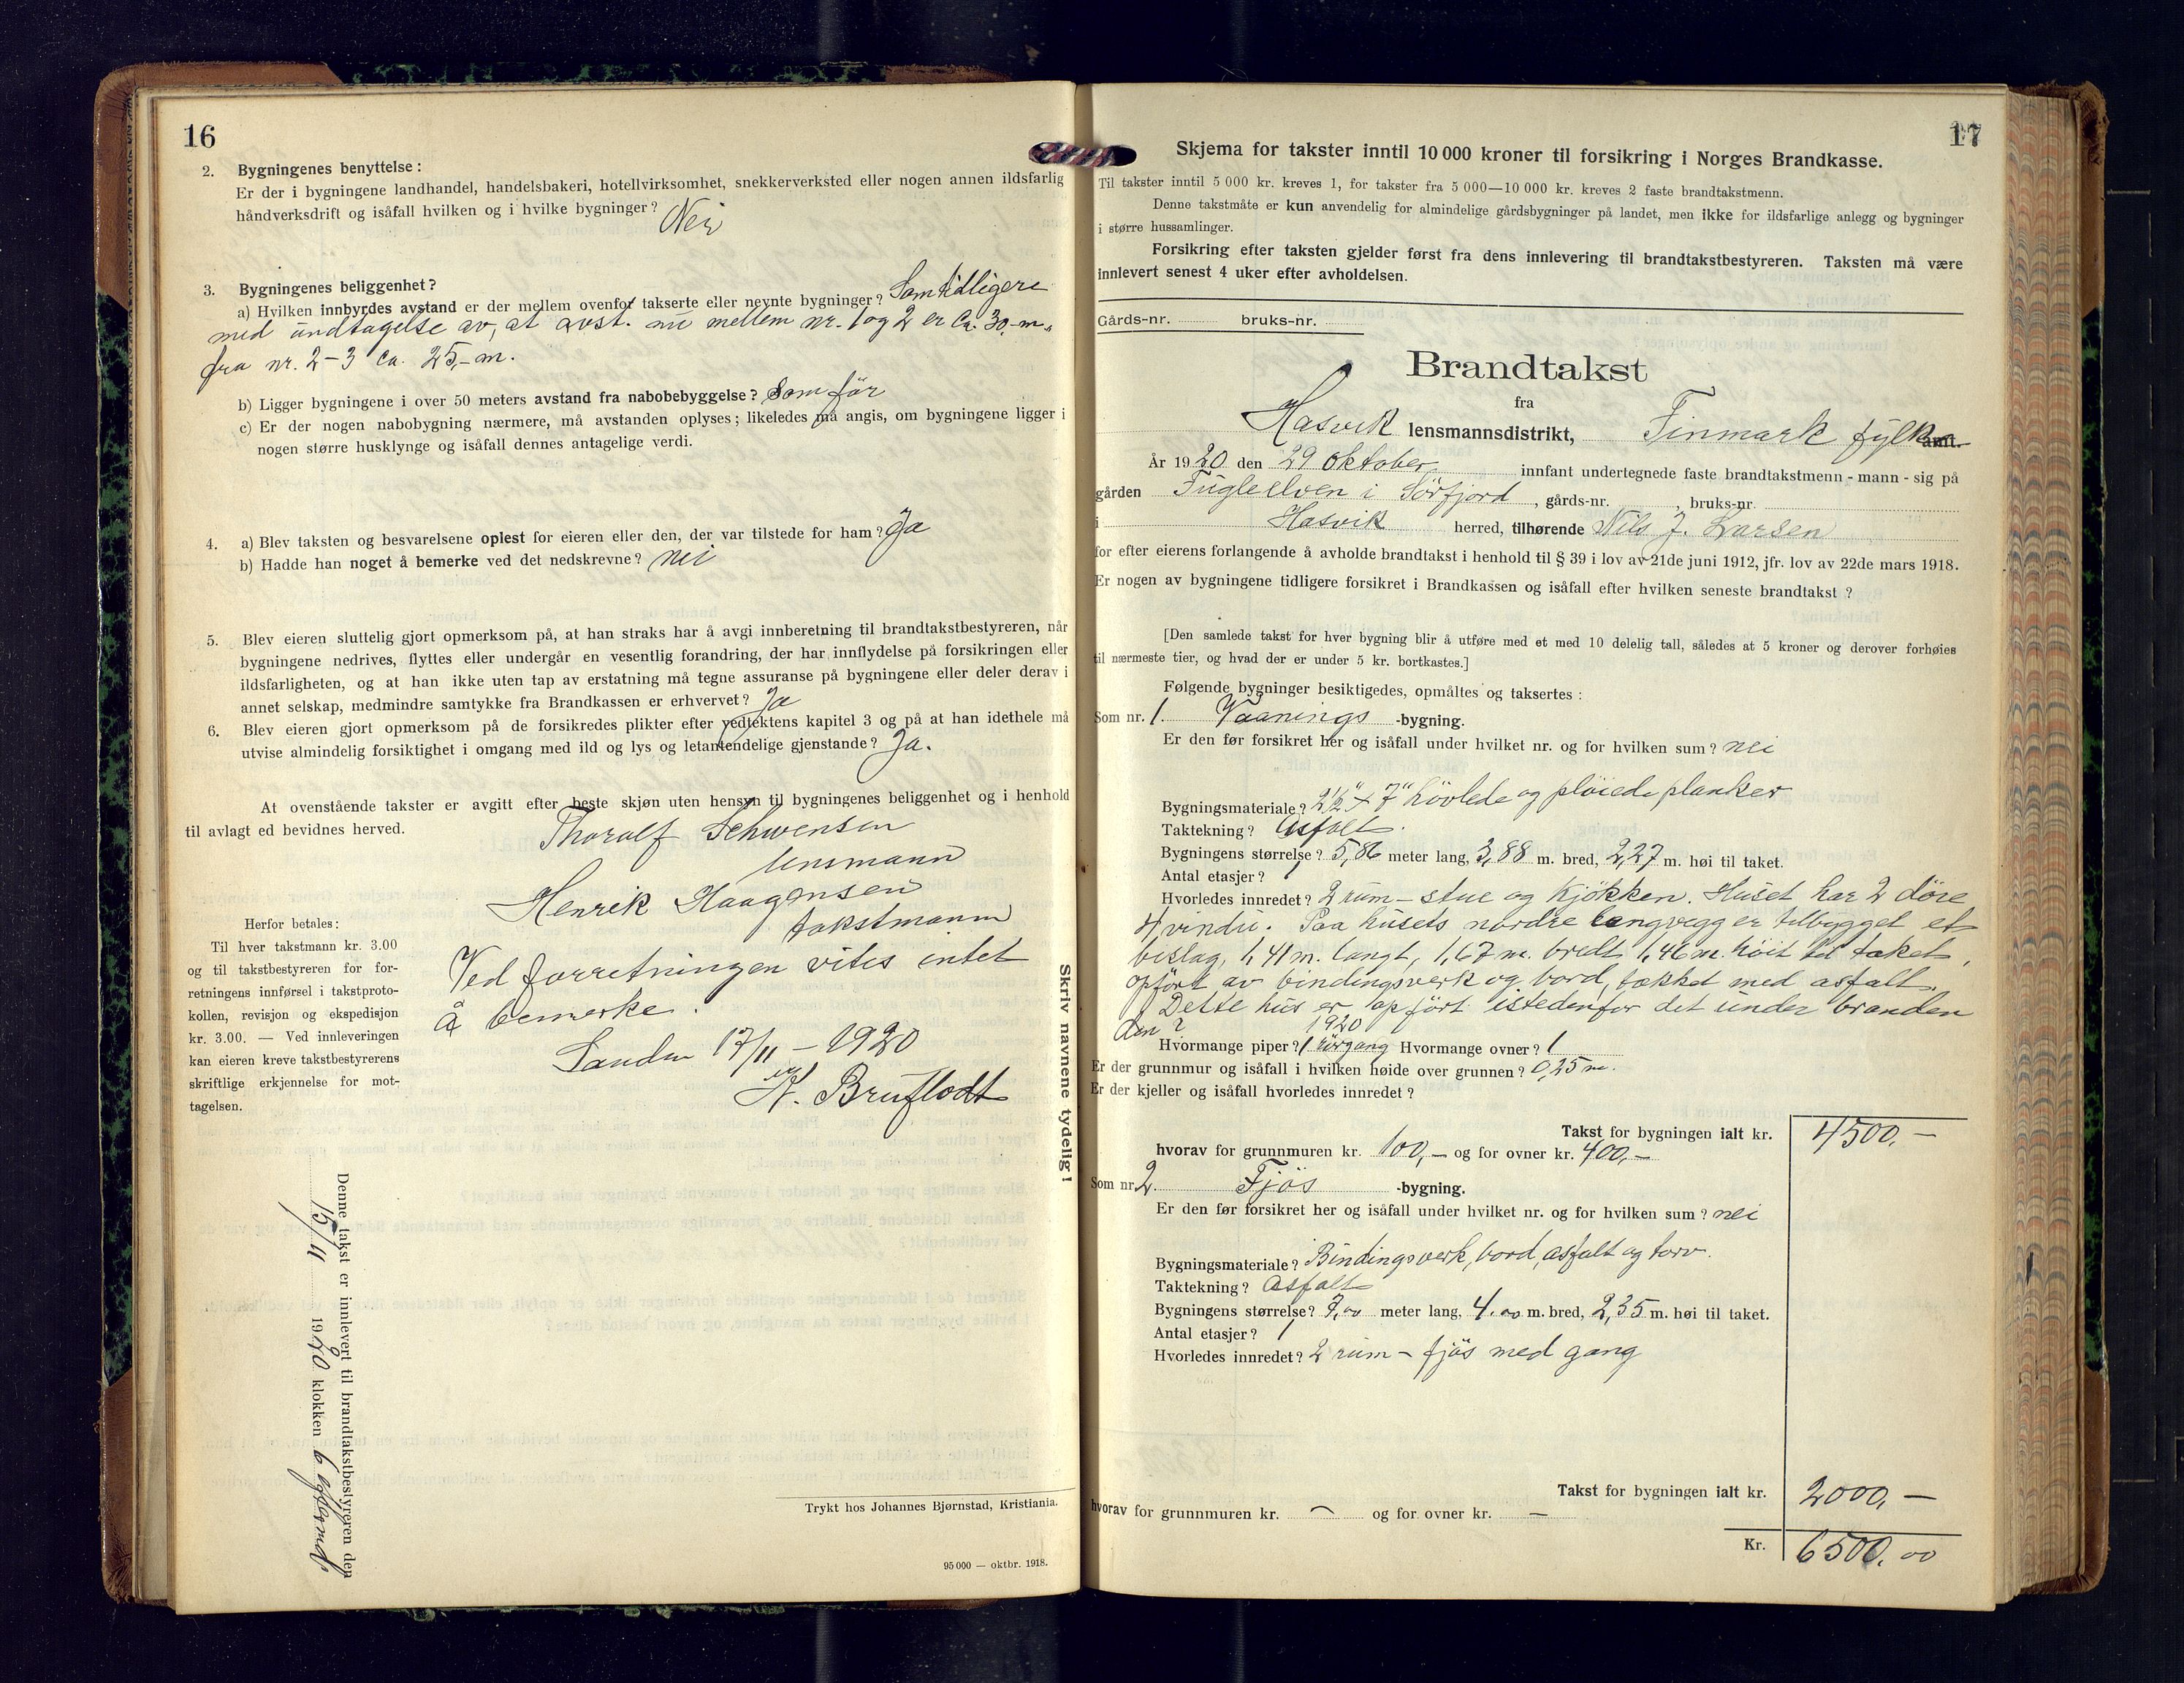 16
2. Bygningenes benyttelse:
Er der i bygningene landhandel, handelsbakeri, hotellvirksomhet, snekkerverksted eller nogen annen ildsfarlig
håndverksdrift og isåfall hvilken og i hvilke bygninger? Nei
3. Bygningenes beliggenhet?
a) Hvilken innbyrdes avstand er der mellem ovenfor takserte eller nevnte bygninger? Som tidligere
med undtagelse av, at avst. nu mellem nr. 1 og 2 er ca. 30,-m.,
fra nr. 2-3 ca. 25,-m.
b) Ligger bygningene i over 50 meters avstand fra nabobebyggelse? Som før
c) Er der nogen nabobygning nærmere, må avstanden oplyses; likeledes må angis, om bygningene ligger i
nogen større husklynge og isåfall dennes antagelige verdi.
4. a) Blev taksten og besvarelsene oplest for eieren eller den, der var tilstede for ham? Ja
b) Hadde han noget å bemerke ved det nedskrevne? nei
5. Blev eieren sluttelig gjort opmerksom på, at han straks har å avgi innberetning til brandtakstbestyreren, når
bygningene nedrives, flyttes eller undergår en vesentlig forandring, der har innflydelse på forsikringen eller
ildsfarligheten, og at han ikke uten tap av erstatning må tegne assuranse på bygningene eller deler derav i
annet selskap, medmindre samtykke fra Brandkassen er erhvervet? Ja
6. Blev eieren gjort opmerksom på de forsikredes plikter efter vedtektens kapitel 3 og på at han idethele må
utvise almindelig forsiktighet i omgang med ild og lys og letantendelige gjenstande? Ja.
At ovenstående takster er avgitt efter beste skjøn uten hensyn til bygningenes beliggenhet og i henhold
til avlagt ed bevidnes herved.
Thoralf Schwensen
lensmann
Henrik Haagensen
takstmann
Herfor betales:
Til hver takstmann kr. 3.00
og til takstbestyreren for for-
retningens innførsel i takstproto-
kollen, revisjon og ekspedisjon
kr. 3.00. — Ved innleveringen
kan eieren kreve takstbestyrerens
skriftlige erkjennelse for mot-
tagelsen.
Ved forretningen vites intet
å bemerke.
Sandn 17/11 - 1920
K. Bruflodt
Skriv navnene tydelig!
Denne takst er innlevert til brandtakstbestyreren den
15/11 1920 klokken 6 efterm
Trykt hos Johannes Bjørnstad, Kristiania.
95 000 — oktbr. 1918.
17
Skjema for takster inntil 10 000 kroner til forsikring i Norges Brandkasse.
Til takster inntil 5 000 kr. kreves 1, for takster fra 5 000—10 000 kr. kreves 2 faste brandtakstmenn.
Denne takstmåte er kun anvendelig for almindelige gårdsbygninger på landet, men ikke for ildsfarlige anlegg og bygninger
i større hussamlinger.
Forsikring efter taksten gjelder først fra dens innlevering til brandtakstbestyreren. Taksten må være
innlevert senest 4 uker efter avholdelsen.
Gårds-nr. bruks-nr.
Brandtakst
fra
Hasvik lensmannsdistrikt, Finmark fylke amt.
År 1920 den 29 oktober innfant undertegnede faste brandtakstmenn - mann - sig på
gården Fugleelven i Sörfjord, gårds-nr. , bruks-nr.
i Hasvik herred, tilhørende Nils J. Larsen
for efter eierens forlangende å avholde brandtakst i henhold til § 39 i lov av 21de juni 1912, jfr. lov av 22de mars 1918.
Er nogen av bygningene tidligere forsikret i Brandkassen og isåfall efter hvilken seneste brandtakst?
[Den samlede takst for hver bygning blir å utføre med et med 10 delelig tall, således at 5 kroner og derover forhøies
til nærmeste tier, og hvad der er under 5 kr. bortkastes.]
Følgende bygninger besiktigedes, opmåltes og taksertes:
Som nr. 1. Vaanings -bygning.
Er den før forsikret her og isåfall under hvilket nr. og for hvilken sum? nei
Bygningsmateriale? 2½" x 7" hövlede og plöiede planker
Taktekning? Asfalt.
Bygningens størrelse? 5,86 meter lang, 3,88 m. bred, 2,27 m. høi til taket.
Antal etasjer? 1
Hvorledes innredet? 2 rum - stue og kjökken. Huset har 2 döre
4 vindu. Paa husets nordre langvegg er tilbygget et
bislag, 1,41 m. langt, 1,67 m. bredt 1,46 m. höit til taket,
opfört av bindingsverk og bord, tækket med asfalt.
Dette hus er opfört istedenfor det under branden
den ? 1920
Hvormange piper? 1 rörgang Hvormange ovner? 1
Er der grunnmur og isåfall i hvilken høide over grunnen? 0,25 m.
Er der kjeller og isåfall hvorledes innredet?
Takst for bygningen ialt kr. 4500.-
hvorav for grunnmuren kr. 100,- og for ovner kr. 400,-
Som nr. 2. Fjös -bygning.
Er den før forsikret her og isåfall under hvilket nr. og for hvilken sum? nei
Bygningsmateriale? Bindingsverk, bord, asfalt og torv.
Taktekning? Asfalt
Bygningens størrelse? 7,00 meter lang, 4.00 m. bred, 2,35 m. høi til taket.
Antal etasjer? 1
Hvorledes innredet? 2 rum - fjös med gang
Takst for bygningen ialt kr. 2000,-
hvorav for grunnmuren kr. - og for ovner kr. -
Kr. 6500.00